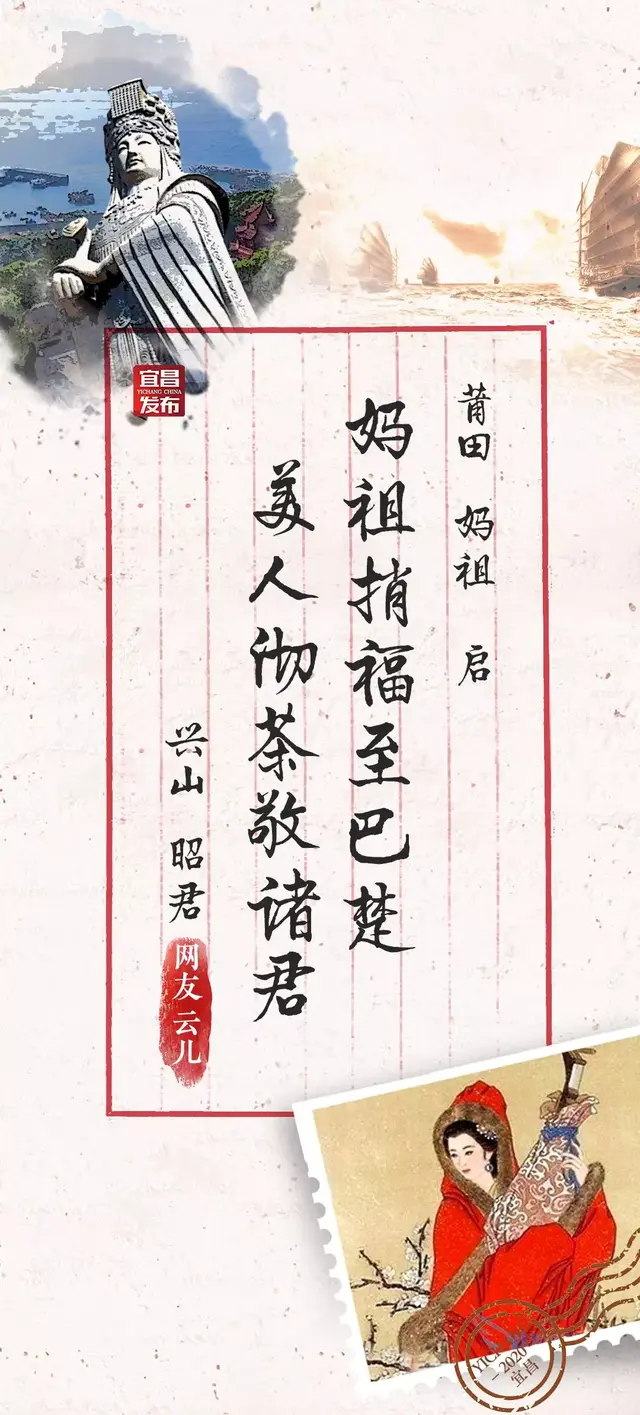 宜昌
YICHANG CHINA
发布
莆田 妈祖 启
妈祖捎福至巴楚
美人沏茶敬诸君
兴山 昭君
网友云儿
2020
宜昌